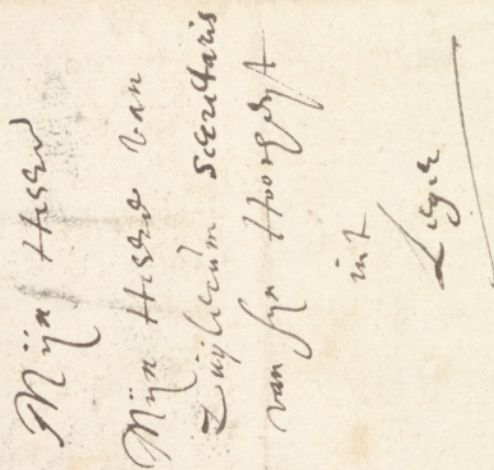 Mijn Heere
Mijn Heere van
Zuijlecum secretaris
van sijn Hoocheyt
int
Leger